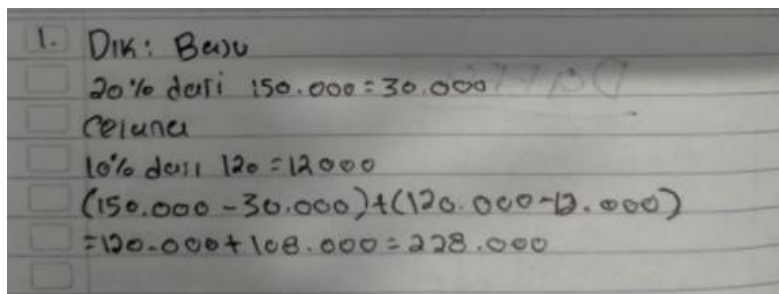 1. Dik: Baju
20% dari 150.000 = 30.000
Celana
10% dari 120 = 12000
(150.000 - 30.000) + (120.000 - 12.000)
= 120.000 + 108.000 = 228.000